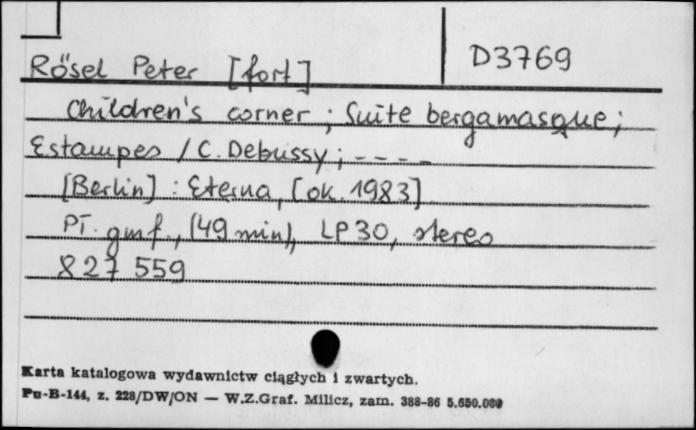 D3769
Rösel Peter [fort]
Children's corner ; Suite bergamasque ;
Estampes / C. Debussy ; - - - -
[Berlin] : Eterna, [ok. 1983]
Pł. gmf., (49 min), LP 30, stereo
827 559
Karta katalogowa wydawnictw ciągłych i zwartych.
Pu-B-144, z. 228/DW/ON — W.Z.Graf. Milicz, zam. 388-86 5.650.000